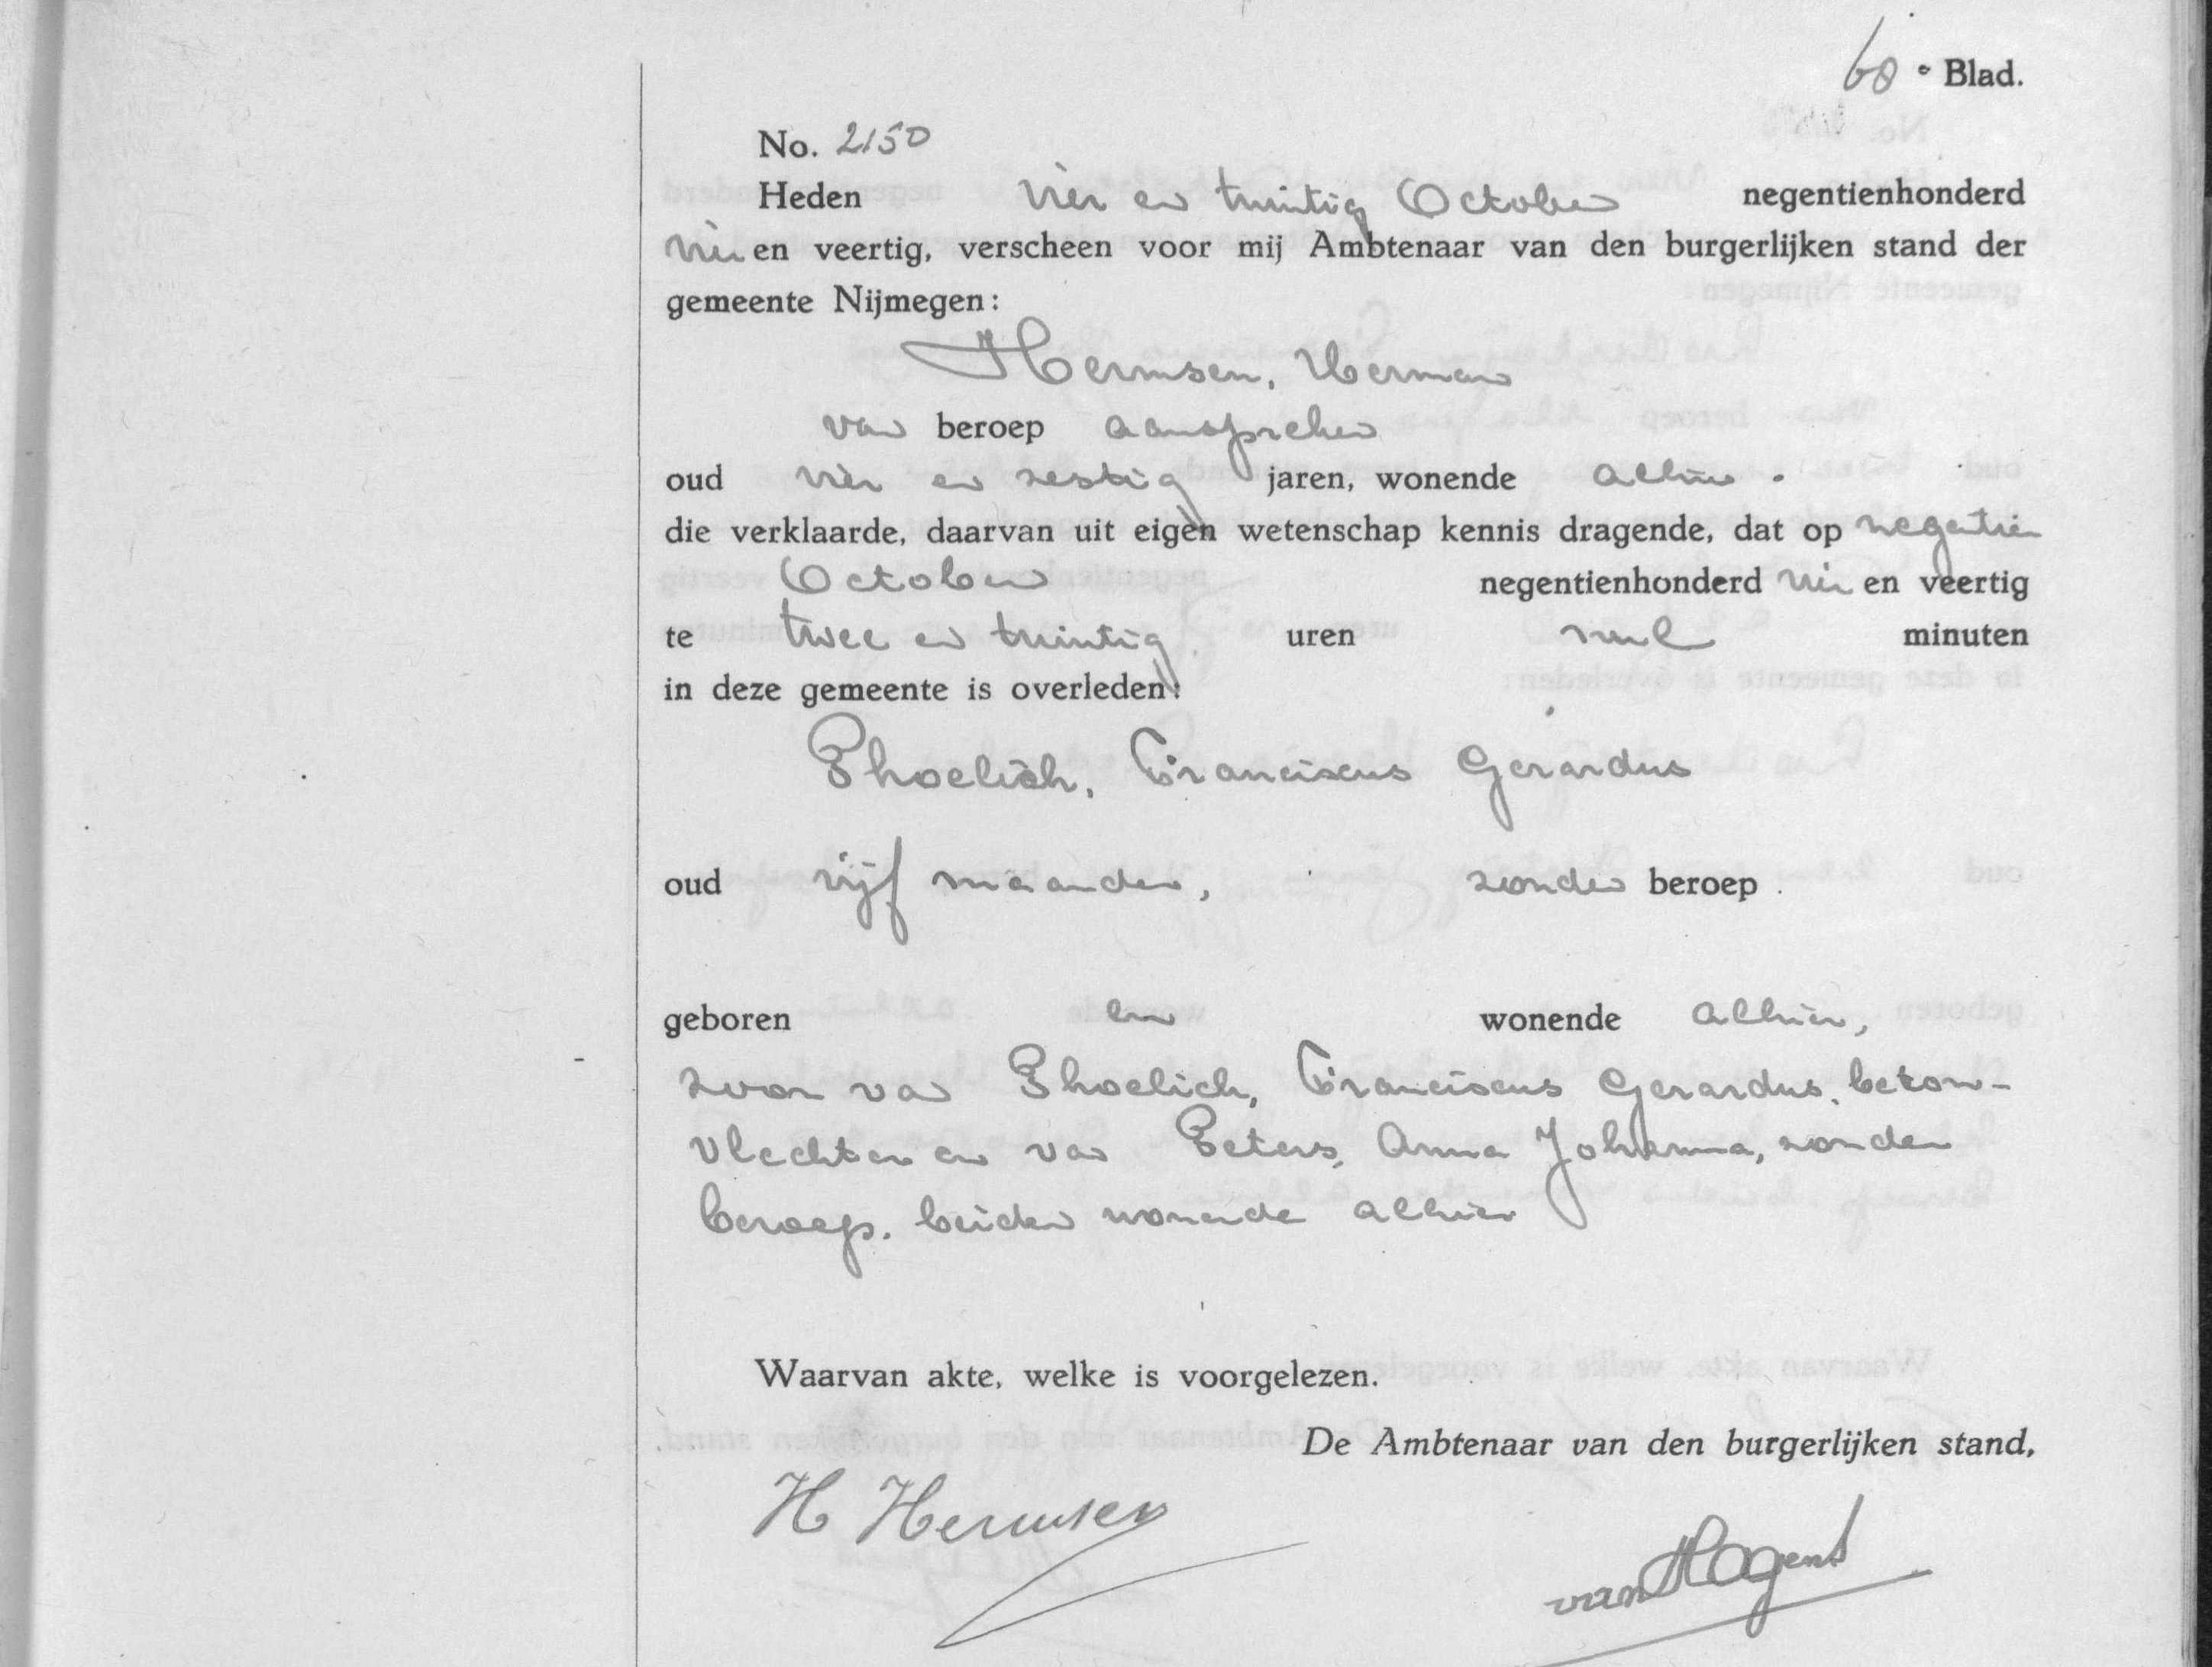 60 e Blad.
No. 2150
Heden vier en twintig October negentienhonderd
vier en veertig, verscheen voor mij Ambtenaar van den burgerlijken stand der
gemeente Nijmegen:
Hermsen, Herman
van beroep aanspreker
oud vier en zestig jaren, wonende alhier.
die verklaarde, daarvan uit eigen wetenschap kennis dragende, dat op negentien
October negentienhonderd vier en veertig
te twee en twintig uren nul minuten
in deze gemeente is overleden:
Phoelich, Franciscus Gerardus
oud vijf maanden, zonder beroep
geboren en wonende alhier,
zoon van Phoelich, Franciscus Gerardus, beton-
vlechter en van Peters, Anna Johanna, zonder
beroep, beiden wonende alhier
Waarvan akte, welke is voorgelezen.
De Ambtenaar van den burgerlijken stand,
H Hermsen
van Hagens